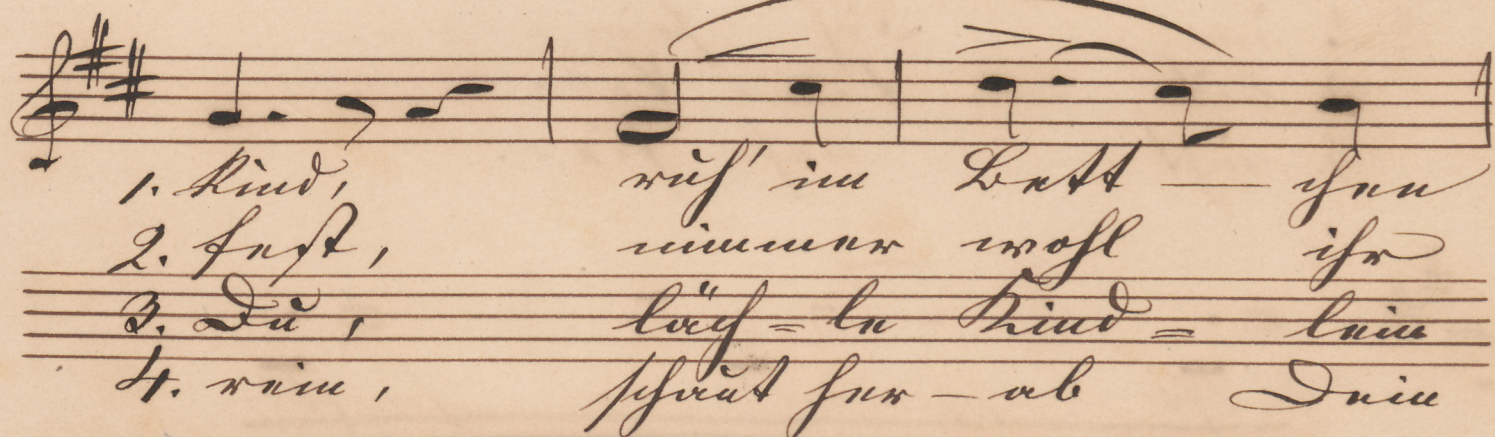 1. Kind, ruh' im Bett — chen
2. fest, nimmer wohl ihr
3. Du, läch = le Kind = lein
4. rein, schaut her — ab Dein